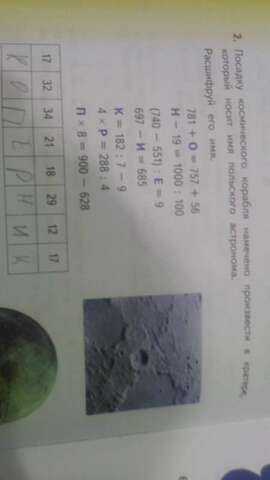 2. Посадку космического корабля намечено произвести в кратере,
который носит имя польского астронома.
Расшифруй его имя.
781 + О = 757 + 56
Н − 19 = 1000 : 100
(740 − 551) : Е = 9
697 − И = 685
К = 182 : 7 − 9
4 × Р = 288 : 4
П × 8 = 900 − 628
17 32 34 21 18 29 12 17
К О П Е Р Н И К